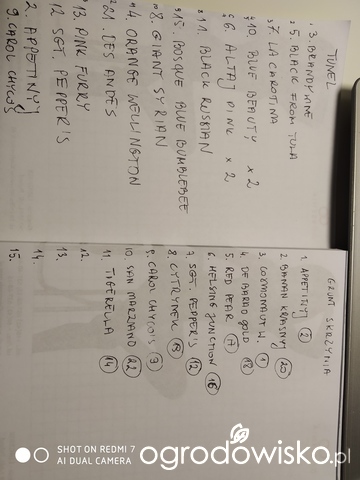 TUNEL
3. BRANDYWINE
5. BLACK FROM TULA
7. LA CAROTINA
10. BLUE BEAUTY x 2
6. ALTAJ PINK x 2
11. BLACK RUSSIAN
15. BOSQUE BLUE BUMBLEBEE
8. GIANT SYRIAN
4. ORANGE WELLINGTON
21. DES ANDES
13. PINK FURRY
12 SGT. PEPPER'S
2. APPETINYJ
9. CAROL CHYCOS
GRUNT SKRZYNIA
1. APPETITYJ 2
2 BANAN KRASNYJ 20
3. COSMONAUT W. 1
4. DE BARAO GOLD 18
5. RED PEAR 17
6. HELSING JUNCTION 16
7. SGT. PEPPER'S 12
8. CYTRYNEK 19
9. CAROL CHYCOS 9
10. SAN MARZANO 22
11. TIGERELLA 14
12.
13.
14.
15.
SHOT ON REDMI 7
AI DUAL CAMERA
ogrodowisko.pl